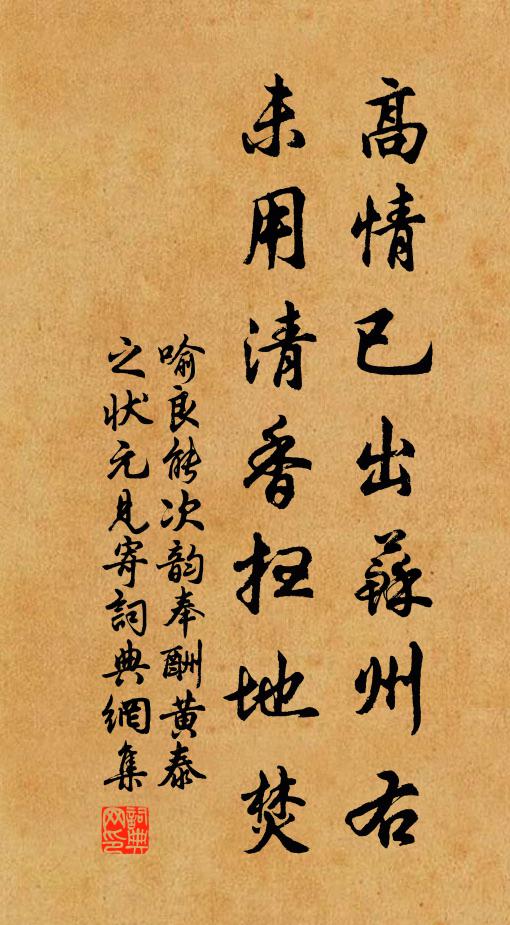 高情已出蘇州右
未用清香扫地焚
喻良能次韵奉酬黄泰
之状元見寄詞典網集
詞典网印